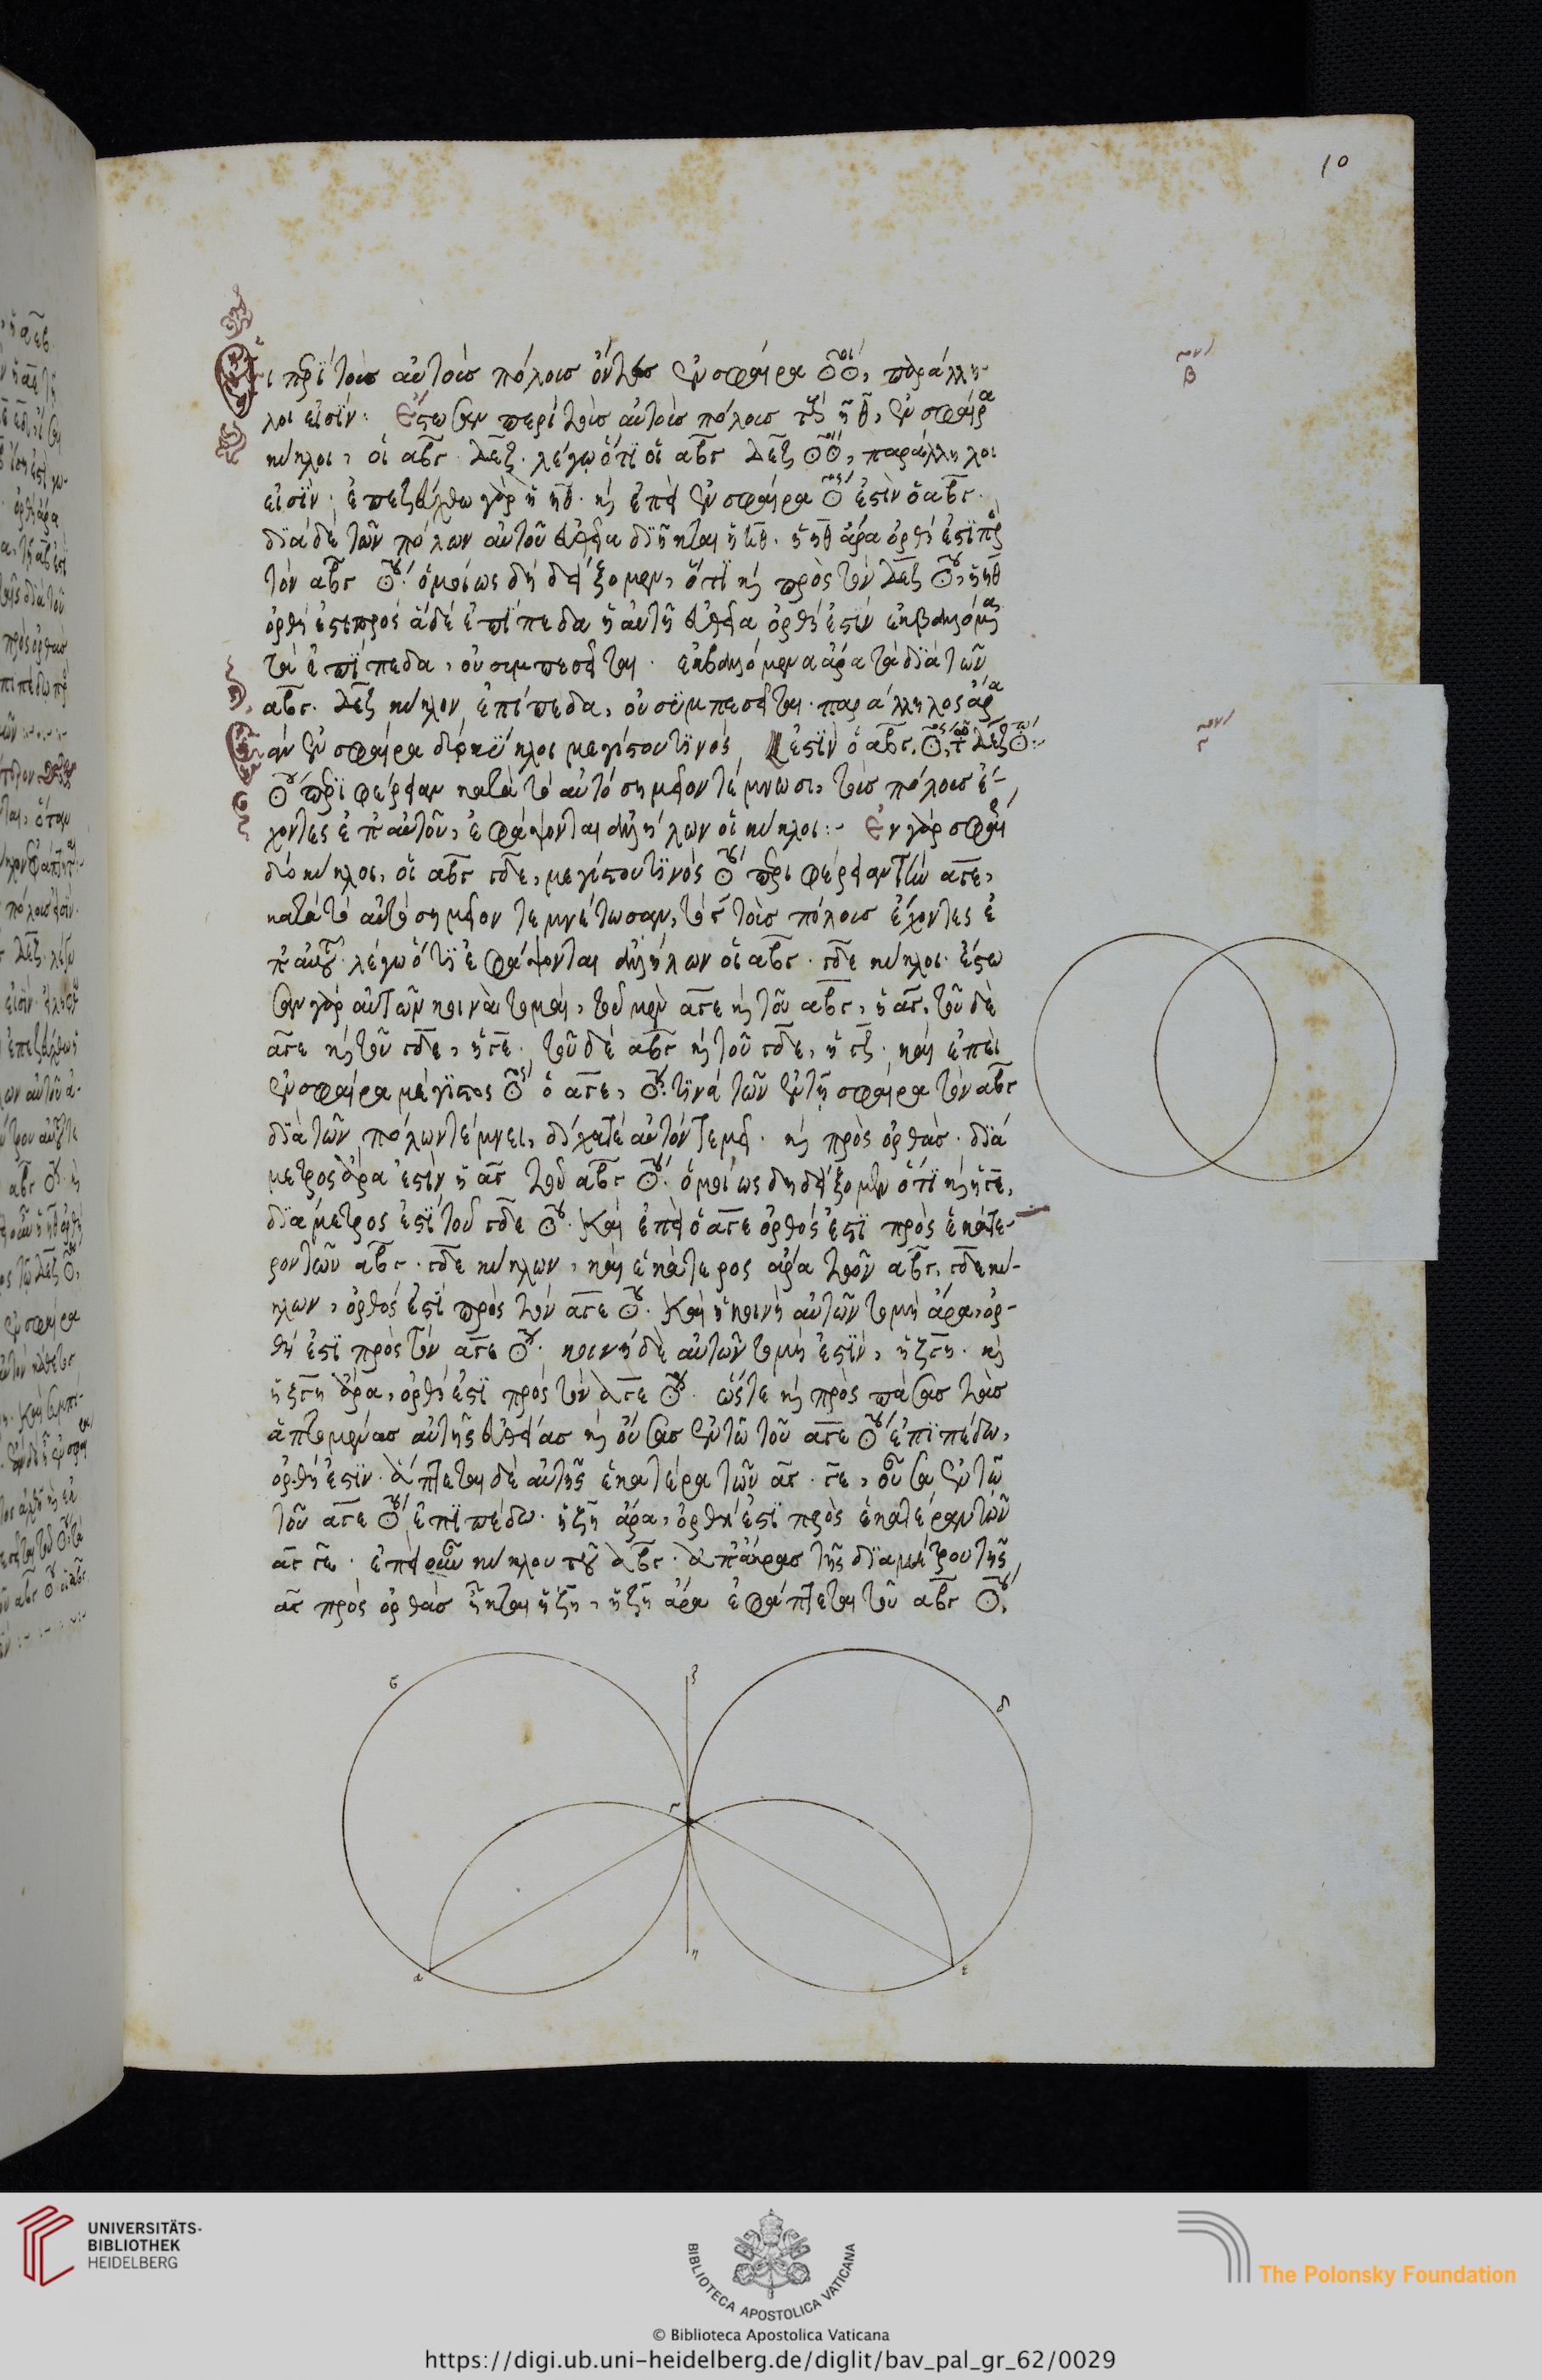 10
Οἱ περὶ τοὺς αὐτοὺς πόλους ὄντες ἐν σφαίρα ☉☉, παράλλη-
λοι εἰσίν· Ἔστωσαν περὶ τοὺς αὐτοὺς πόλους τοὺς η θ, ἐν σφαίρα
κύκλοι, οἱ αβγ δεζ. λέγω ὅτι οἱ αβγ δεζ ☉☉, παράλληλοι
εἰσὶν· ἐπεζεύχθω γὰρ ἡ ηθ. καὶ ἐπεὶ ἐν σφαίρα ☉ ἐστὶν ὁ αβγ.
διὰ δὲ τῶν πόλων αὐτοῦ εὐθεῖα διῆκται ἡ ηθ. ἡ ηθ ἄρα ὀρθή ἐστι πρὸς
τὸν αβγ ☉. ὁμοίως δὴ δείξομεν, ὅτι καὶ πρὸς τὸν δεζ ☉, ἡ ηθ
ὀρθή ἐστι πρὸς ἃ δὲ ἐπίπεδα ἡ αὐτὴ εὐθεῖα ὀρθή ἐστιν ἐκβαλλόμενα
τὰ ἐπίπεδα, οὐ συμπεσεῖται. ἐκβαλλόμενα ἄρα τὰ διὰ τῶν
αβγ. δεζ κύκλον ἐπίπεδα, οὐ συμπεσεῖται. παράλληλος ἄρα
Ἐὰν ἐν σφαίρα δύο κύκλοι μεγίστου τινὸς ἐστὶν ὁ αβγ, ☉, τῶ δεζ ☉:
☉ περιφέρειαν κατὰ τὸ αὐτὸ σημεῖον τέμνωσι, τοὺς πόλους ἔ-
χοντες ἐπ' αὐτοῦ, ἐφάψονται ἀλλήλων οἱ κύκλοι:- Ἐν γὰρ σφαίρα
δύο κύκλοι, οἱ αβγ γδε, μεγίστου τινὸς ☉ περιφέρειαν τὴν αγε,
κατὰ τὸ αὐτὸ σημεῖον τεμνέτωσαν, τὸ γ τοὺς πόλους ἔχοντες ἐ
π' αὐτοῦ. λέγω ὅτι ἐφάψονται ἀλλήλων οἱ αβγ. γδε κύκλοι. ἔστω
σαν γὰρ αὐτῶν κοιναὶ τομαί, τοῦ μὲν αγε καὶ τοῦ αβγ, ἡ αγ, τοῦ δὲ
αγε καὶ τοῦ γδε, ἡ γε. τοῦ δὲ αβγ καὶ τοῦ γδε, ἡ γζ. καὶ ἐπεὶ
ἐν σφαίρα μέγιστος ☉ ὁ αγε, ☉ τινὰ τῶν ἐν τῆ σφαίρα τὸν αβγ
διὰ τῶν πόλων τέμνει, δίχα τε αὐτὸν τεμεῖ. καὶ πρὸς ὀρθάς. διά
μετρος ἄρα ἐστὶν ἡ αγ τοῦ αβγ ☉. ὁμοίως δὴ δείξομεν ὅτι καὶ ἡ γε,
διάμετρος ἐστὶ τοῦ γδε ☉. Καὶ ἐπεὶ ὁ αγε ὀρθός ἐστι πρὸς ἑκάτε-
ρον τῶν αβγ. γδε κύκλων, καὶ ἑκάτερος ἄρα τῶν αβγ, γδε κύ-
κλων, ὀρθός ἐστι πρὸς τὸν αγε ☉. Καὶ ἡ κοινὴ αὐτῶν τομὴ ἄρα, ὀρ-
θή ἐστι πρὸς τὸν αγε ☉. κοινὴ δὲ αὐτῶν τομή ἐστιν, ἡ ζγη. καὶ
ἡ ζγη ἄρα, ὀρθή ἐστι πρὸς τὸν αγε ☉. ὥστε καὶ πρὸς πάσας τὰς
ἁπτομένας αὐτῆς εὐθείας καὶ οὔσας ἐν τῶ τοῦ αγε ☉ ἐπιπέδω,
ὀρθή ἐστιν. ἅπτεται δὲ αὐτῆς ἑκατέρα τῶν αγ. γε, οὖσα ἐν τῶ
τοῦ αγε ☉ ἐπιπέδω. ἡ ζη ἄρα, ὀρθή ἐστι πρὸς ἑκατέραν τῶν
αγ γε. ἐπεὶ οὖν κύκλου τοῦ αβγ. ἀπ' ἄκρας τῆς διαμέτρου τῆς
αγ πρὸς ὀρθὰς ἦκται ἡ ζη, ἡ ζη ἄρα ἐφάπτεται τοῦ αβγ ☉.
β
γ
β ζ δ
γ
α η ε
UNIVERSITÄTS-
BIBLIOTHEK
HEIDELBERG
BIBLIOTECA APOSTOLICA VATICANA
The Polonsky Foundation
© Biblioteca Apostolica Vaticana
https://digi.ub.uni-heidelberg.de/diglit/bav_pal_gr_62/0029